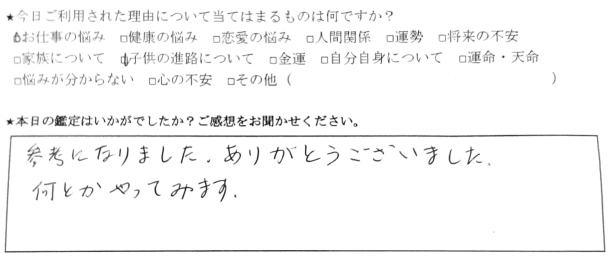 ★今日ご利用された理由について当てはまるものは何ですか？
☑お仕事の悩み □健康の悩み □恋愛の悩み □人間関係 □運勢 □将来の不安
□家族について ☑子供の進路について □金運 □自分自身について □運命・天命
□悩みが分からない □心の不安 □その他（ ）
★本日の鑑定はいかがでしたか？ご感想をお聞かせください。
参考になりました。ありがとうございました。
何とかやってみます。